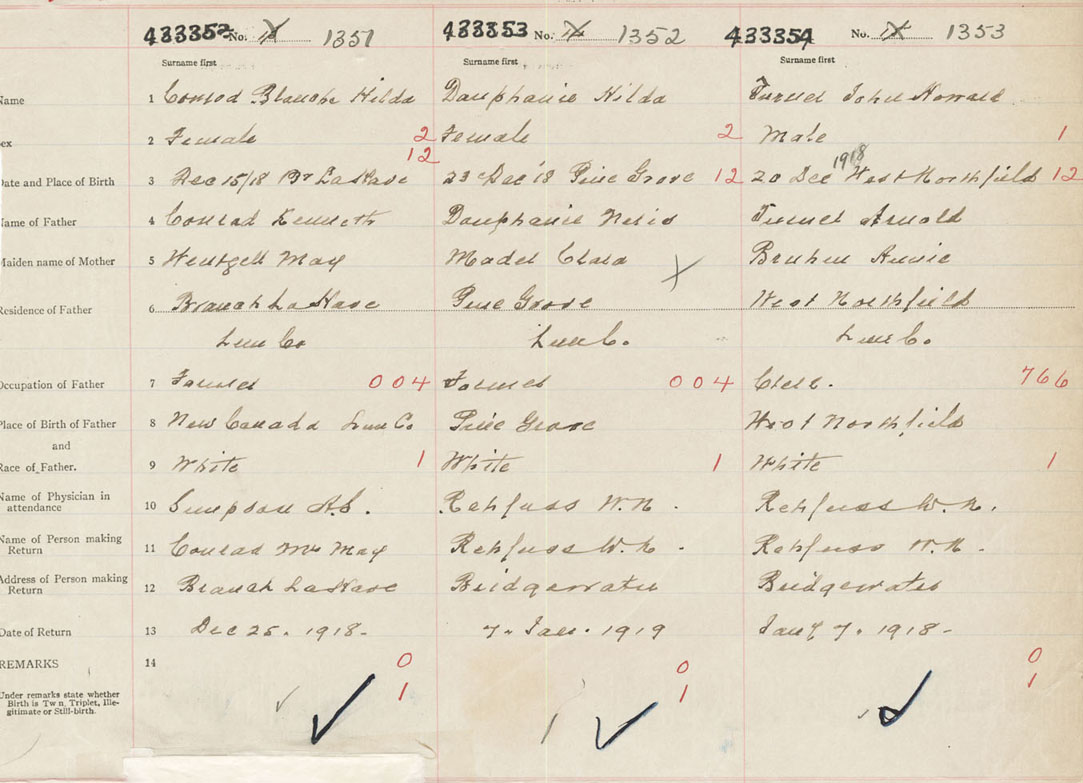 433352 No. IX 1351 433353 No. IX 1352 433354 No. IX 1353
Surname first Surname first Surname first
Name 1 Conrad Blanche Hilda Dauphanie Hilda Turner John Howard
ex 2 Female 2 Female 2 Male 1
12 1918
Date and Place of Birth 3 Dec 15/18 Br LaHave 23 Dec 18 Pine Grove 12 20 Dec West Northfield 12
Name of Father 4 Conrad Kenneth Dauphanie Turner Arnold
Maiden name of Mother 5 Wentzell May Mader Clara X Bruhm Annie
Residence of Father 6 Branch LaHave Pine Grove West Northfield
Lun Co Lun Co. Lun Co.
Occupation of Father 7 Farmer 004 Farmer 004 766
Place of Birth of Father 8 New Canada Lun Co Pine Grove West Northfield
and
Race of Father. 9 White 1 White 1 White 1
Name of Physician in
attendance 10 Simpson Rehfuss W.N. Rehfuss W.N.
Name of Person making
Return 11 Conrad Mrs May Rehfuss W.N. Rehfuss W.N.
Address of Person making
Return 12 Branch LaHave Bridgewater Bridgewater
Date of Return 13 Dec 25. 1918- 7. Jan. 1919 Jany 7. 1918-
REMARKS 14 0 0 0
Under remarks state whether 1 1 1
Birth is Twn, Triplet, Ille-
gitimate or Still-birth.